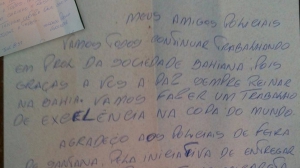 MEUS AMIGOS POLICIAIS
VAMOS TODOS CONTINUAR TRABALHANDO
EM PROL DA SOCIEDADE BAHIANA. POIS
GRAÇAS A VCS A PAZ SEMPRE REINAR
NA BAHIA. VAMOS FAZER UM TRABALHO
DE EXCELÊNCIA NA COPA DO MUNDO.
AGRADEÇO AOS POLICIAIS DE FEIRA
DE SANTANA, PELA INICIATIVA DE ENTREGAR